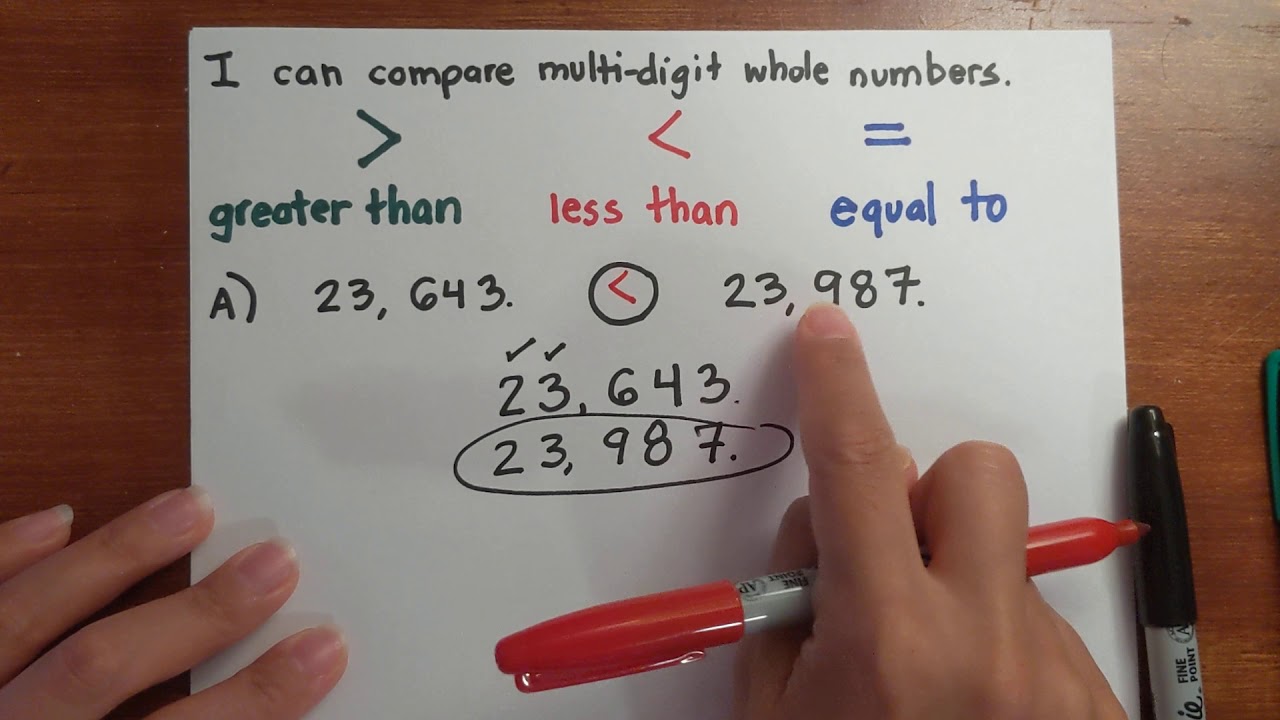 I can compare multi-digit whole numbers.
> < =
greater than less than equal to
A) 23, 643. < 23, 987.
✓ ✓
23, 643.
23, 987.
FINE POINT AP
FINE POINT